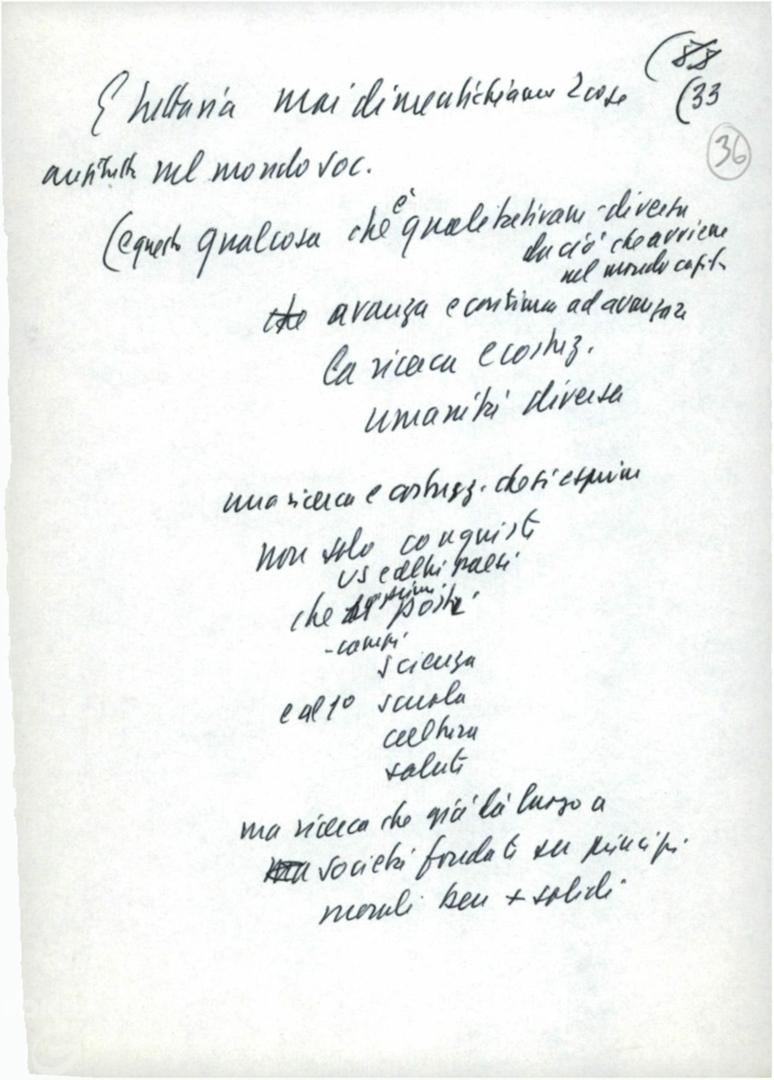 (58
(33
36
E tuttavia mai dimentichiamo 2 cose
anzitutto nel mondo soc.
(e questo qualcosa che è qualitativam. diverso
da ciò che avviene
nel mondo capit.
che avanza e continua ad avanzare
la ricerca e costruz.
umanità diversa
una ricerca e costruz. che si esprime
non solo conquiste
US e altri paesi
che posti
- campi
scienza
e al 1° scuola
cultura
salute
ma ricerca che già dà luogo a
società fondate su principi
morali ben + solidi